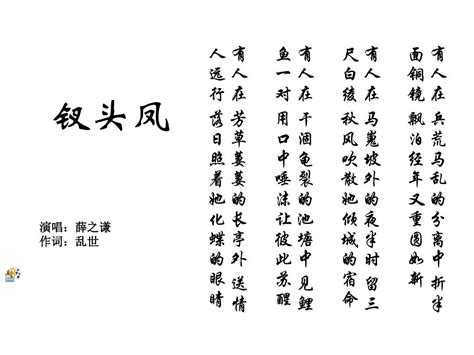 钗头凤
演唱：薛之谦
作词：乱世
有人在兵荒马乱的分离中 折半
面铜镜 飘泊经年又重圆如新
有人在马嵬坡外的夜半时留三
尺白绫 秋风吹散她倾城的宿命
有人在干涸龟裂的池塘中见鲤
鱼一对 用口中唾沫让彼此苏醒
有人在芳草萋萋的长亭外 送情
人远行 落日照着她化蝶的眼睛